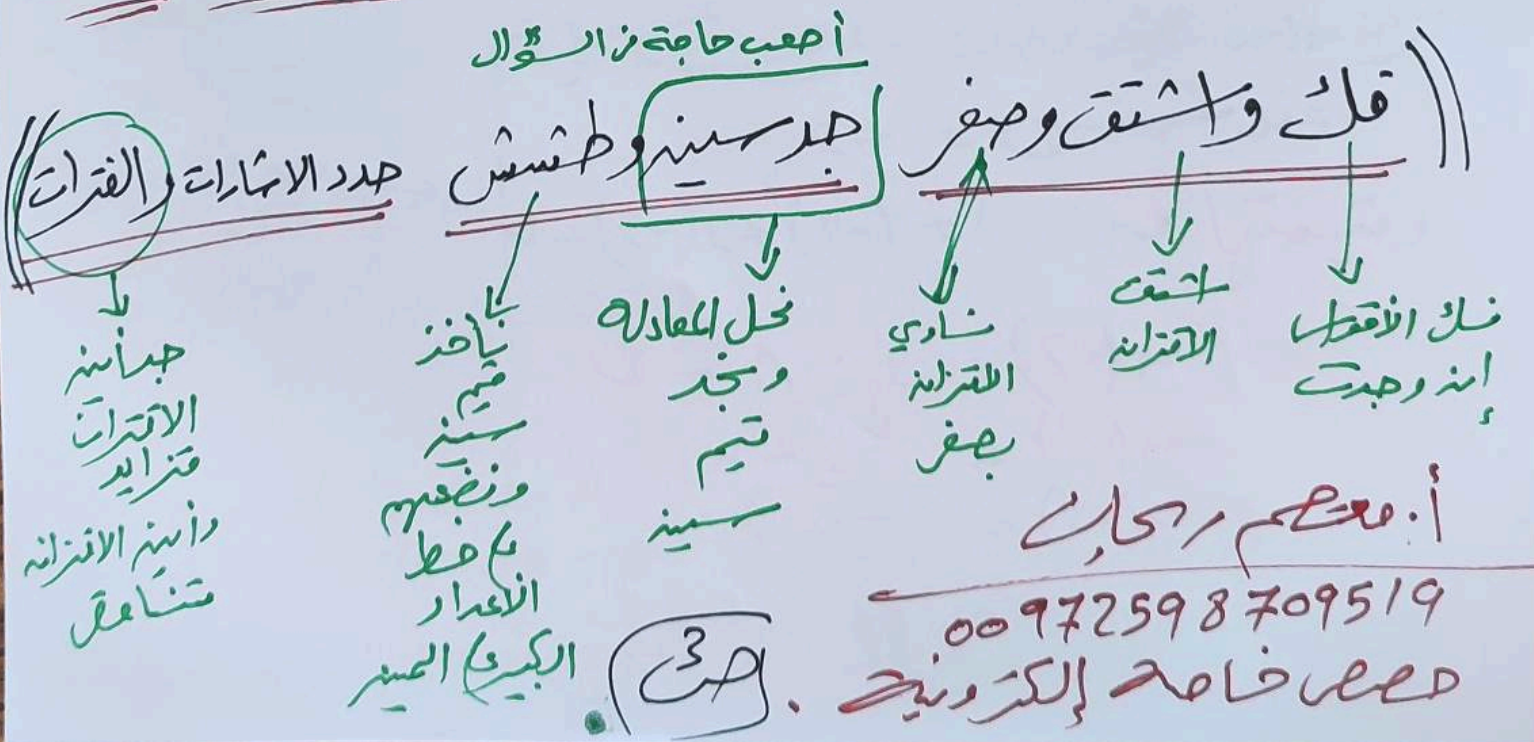 أصعب حاجة في السؤال
((فك واشتق وصفر جد سين وطشش حدد الاشارات والفترات))
فك الأقواس
إن وجدت
اشتق
الاقتران
نساوي
الاقتران
بصفر
نحل المعادلة
ونجد
قيم
سين
نأخذ
قيم
سين
ونضعهم
ع خط
الأعداد
الكبير ع اليمين
جد أين
الاقتران
متزايد
وأين الاقتران
متناقص
أ. معتصم ريحان
00972598709519
حصص خاصة إلكترونية.
ص3